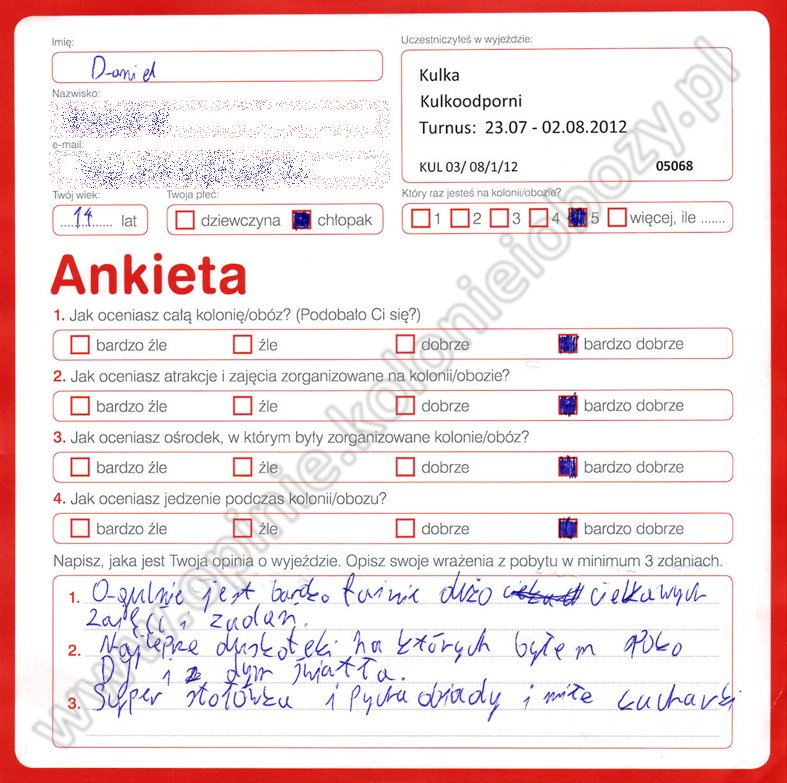 Imię:
Daniel
Nazwisko:
e-mail:
Twój wiek:
14 lat
Twoja płeć:
dziewczyna chłopak
Uczestniczyłeś w wyjeździe:
Kulka
Kulkoodporni
Turnus: 23.07 - 02.08.2012
KUL 03/ 08/1/12 05068
Który raz jesteś na kolonii/obozie?
1 2 3 4 5 więcej, ile .......
Ankieta
1. Jak oceniasz całą kolonię/obóz? (Podobało Ci się?)
bardzo źle źle dobrze bardzo dobrze
2. Jak oceniasz atrakcje i zajęcia zorganizowane na kolonii/obozie?
bardzo źle źle dobrze bardzo dobrze
3. Jak oceniasz ośrodek, w którym były zorganizowane kolonie/obóz?
bardzo źle źle dobrze bardzo dobrze
4. Jak oceniasz jedzenie podczas kolonii/obozu?
bardzo źle źle dobrze bardzo dobrze
Napisz, jaka jest Twoja opinia o wyjeździe. Opisz swoje wrażenia z pobytu w minimum 3 zdaniach.
1. O-gulnie jest bardzo fajnie dużo ciekawych
zajęć i zadań.
2. Najlepsze dyskoteki na których byłem
Dj i dym światła.
3. Super stołówka i Pycha obiady i miłe kucharki
www.opinie.kolonieiobozy.pl